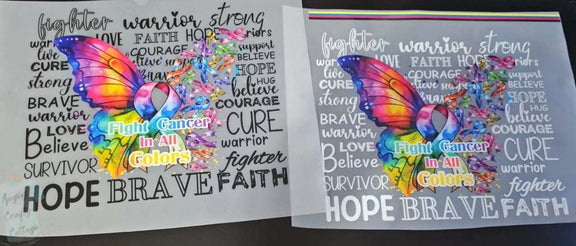 fighter warrior strong
LOVE FAITH HOPE
live COURAGE support
CURE believe support BELIEVE
strong Brave HOPE
HUG
believe
BRAVE COURAGE
warrior CURE
LOVE
Believe warrior
Fight Cancer
in All
Colors
SURVIVOR fighter
HOPE BRAVE FAITH
fighter warrior strong
LOVE FAITH HOPE
live COURAGE support
CURE BELIEVE
strong HOPE
HUG
believe
BRAVE COURAGE
warrior CURE
LOVE
Believe warrior
Fight Cancer
in All
Colors
SURVIVOR fighter
HOPE BRAVE FAITH